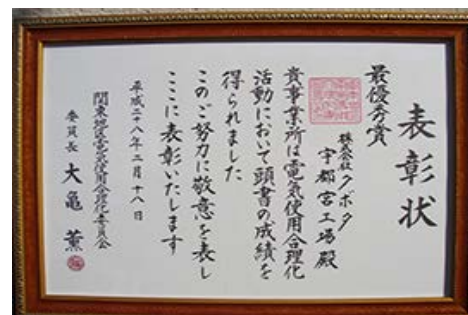 表彰状
最優秀賞
株式会社クボタ
宇都宮工場殿
貴事業所は電気使用合理化
活動において頭書の成績を
得られました
このご努力に敬意を表し
ここに表彰いたします
平成二十八年二月十八日
関東地区電気使用合理化委員会
委員長 大亀 薫